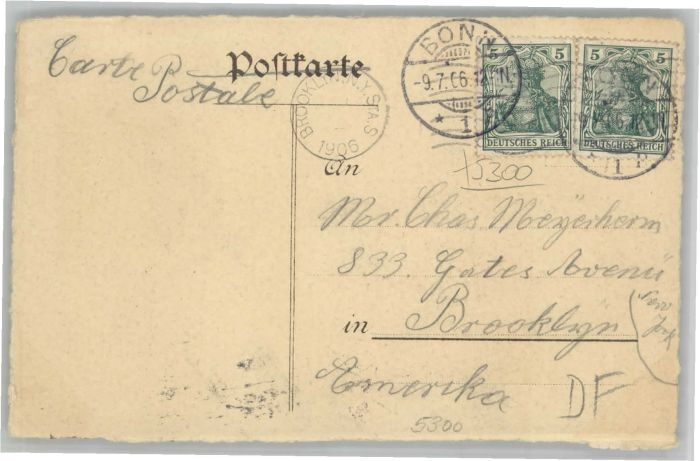 Carte Postale
Postkarte
BONN
-9.7.06.12-1N.
* 1
5 5
DEUTSCHES REICH
5 5
DEUTSCHES REICH
BROOKLYN, N.Y. STA. S
1906
5300
An
Mr. Chas Meyerherm
833. Gates Avenü
in Brooklyn
New York
Amerika
DF
5300